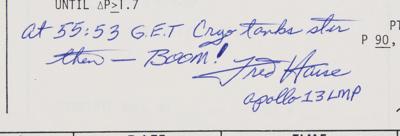 UNTIL ΔP≥1.7
At 55:53 G.E.T Cryo tanks stir
then — BOOM!
P 90,
Fred Haise
Apollo 13 LMP